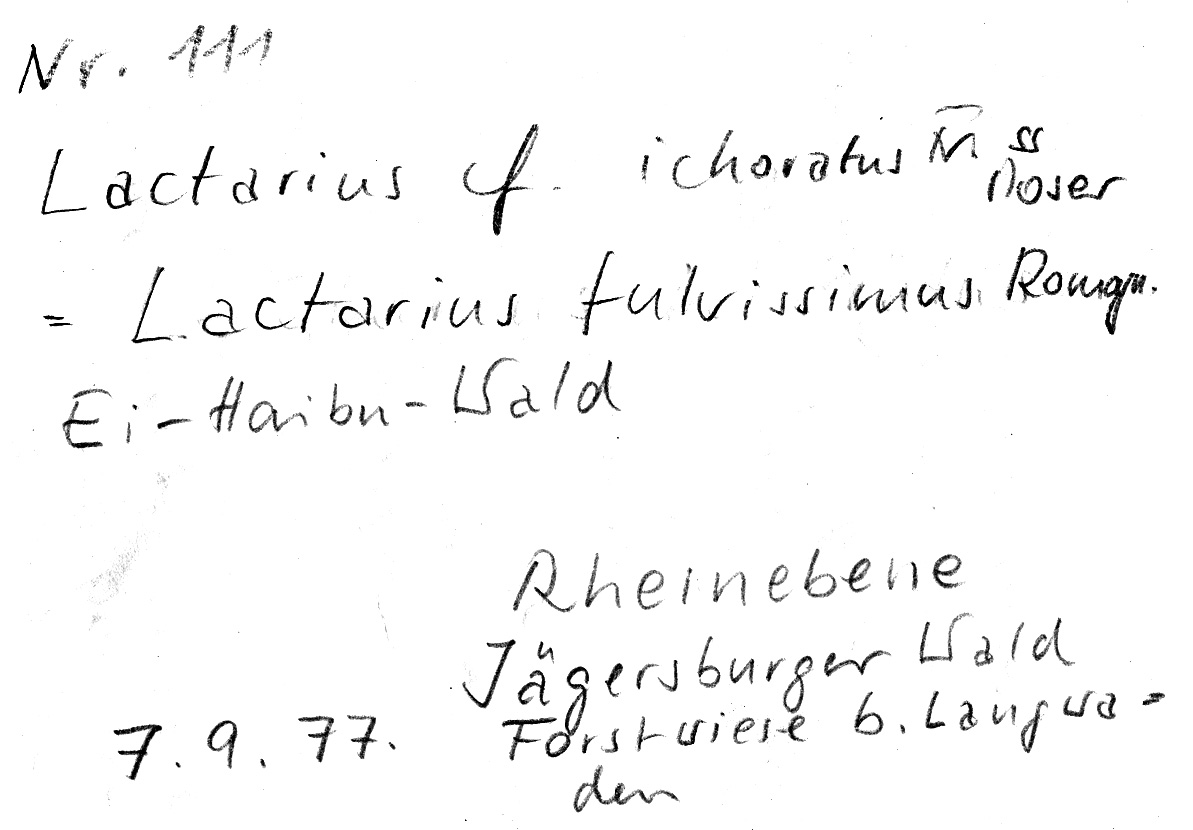 Nr. 111
Lactarius cf. ichoratus ss Moser
= Lactarius fulvissimus Romagn.
Ei-Hainbu-Wald
Rheinebene
Jägersburger Wald
7.9.77. Forstwiese b. Langwa=
den